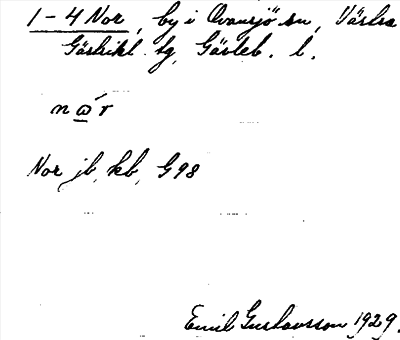 1-4 Nor, by i Ovansjö sn, Västra
Gästrikl. tg, Gävleb. l.
nωr
Nor jb, kb, G98
Emil Gustavsson 1929.